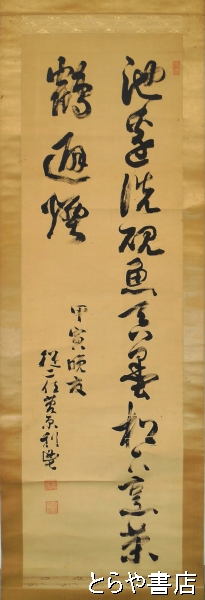 池邊洗硯魚呑墨松下烹茶
鶴避煙
甲寅晩夏
從二位菅原利豊
とらや書店